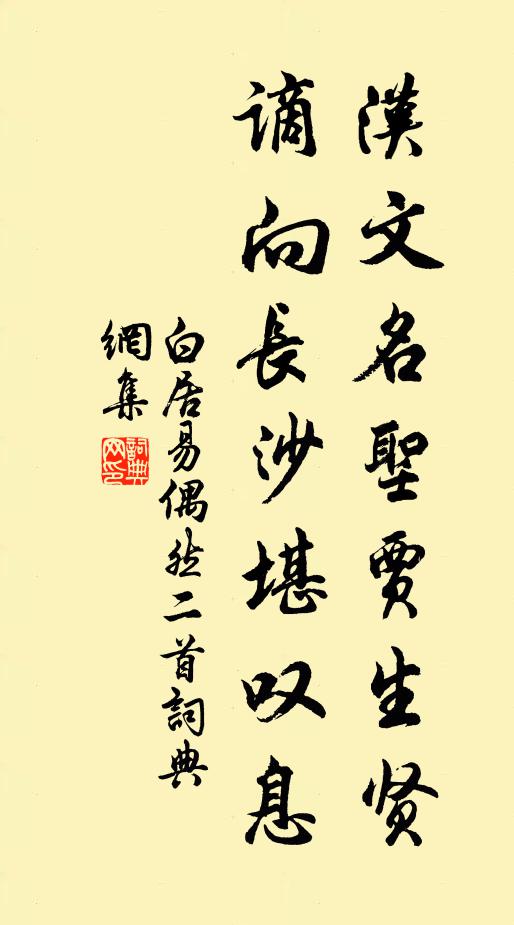 漢文名聖賈生贤
謫向長沙堪叹息
白居易偶然二首詞典
網集
詞典
网印